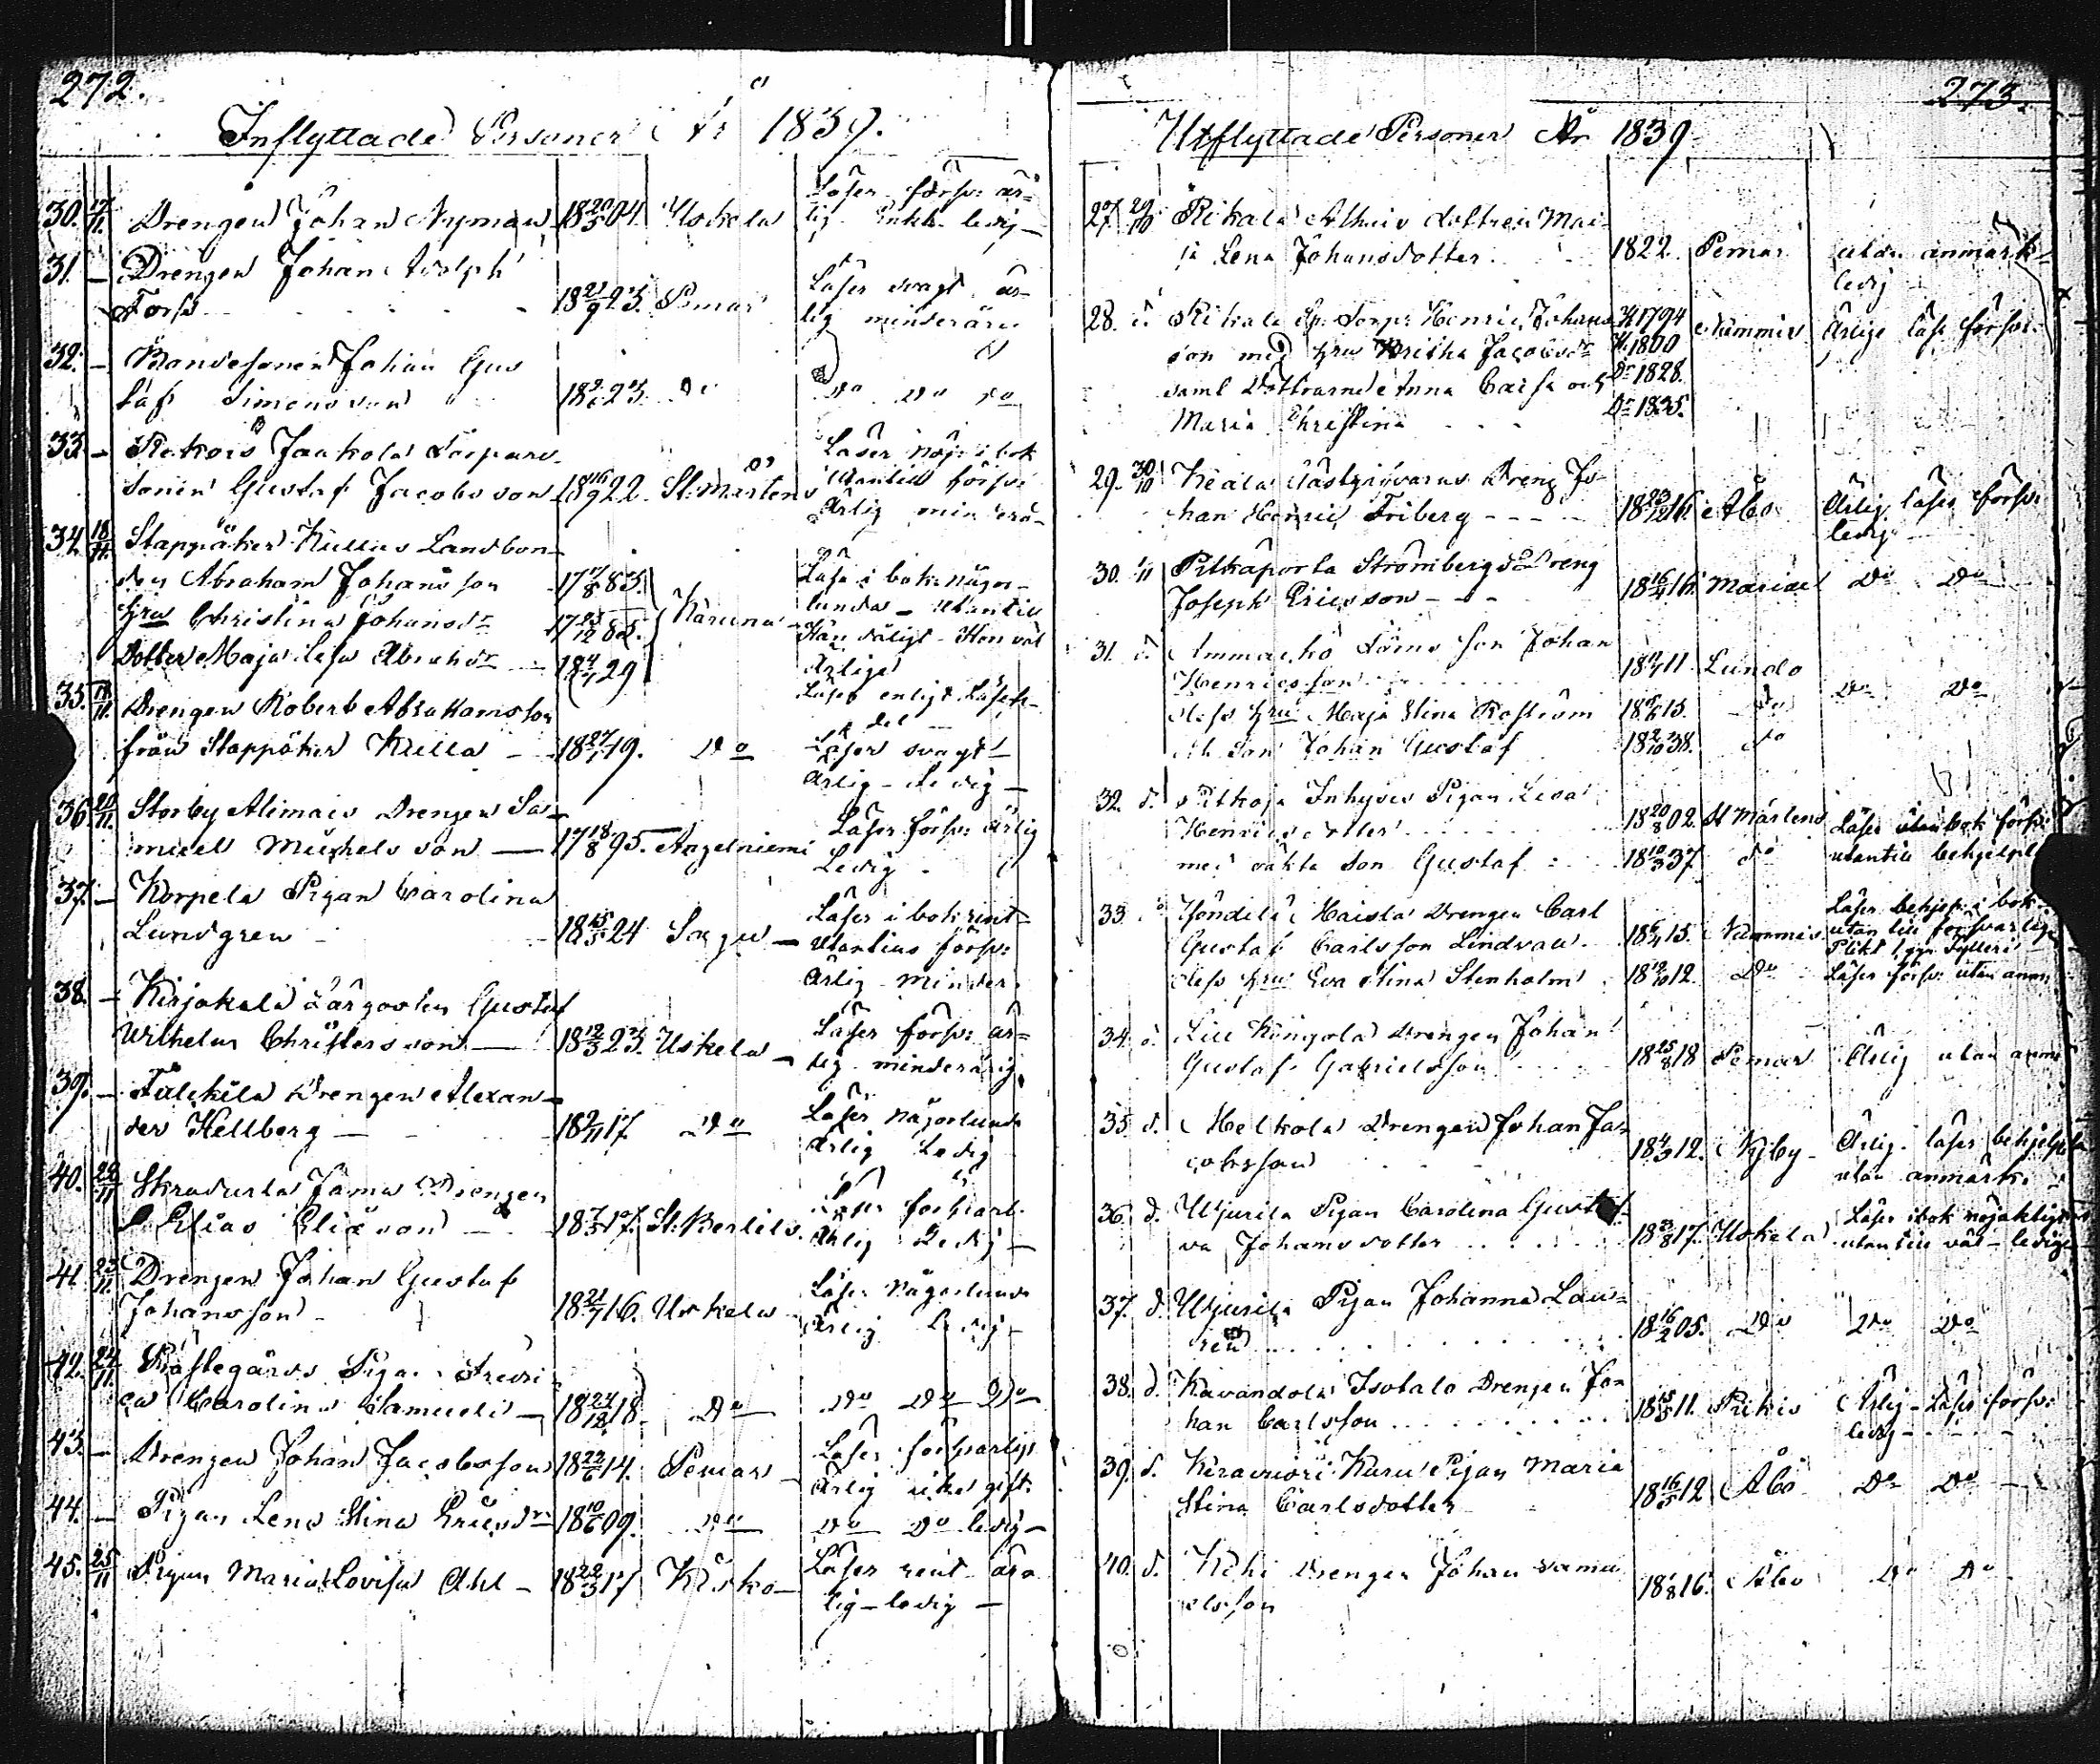 272.
Inflyttade Personer År 1839.
30. 17/11. Drengen Johan Nyman 18 20/5 04. Uskela Läser försv: är-
lig Enkl. ledig
31. — Drengen Johan Adolph
Forss 18 21/9 23. Pemar Läser svagt är-
lig minderårig
32. — Bondesonen Johan Gus
taf Simonsson 18 2/6 23. Do Do Do Do
33. — Rekois Jaakola Torpare-
sonen Gustaf Jacobsson 18 16/9 22. St: Mårtens Läser nöj: i bok
utantill försv:
Ärlig minderå-
34. 18/11. Stappåker Kullas Landbon-
den Abraham Johansson 17 17/8 83.
hru Christina Johansdr 17 25/12 82. Karuna
Dotter Maja Lisa Abrahdr 18 4/7 29
Läser i bok någor-
lunda - utantill
Han dåligt - Hon väl
Ärliga
35. 19/11. Drengen Robert Abrahamsson
från Stappåker Kulla — 18 27/7 19. Do
Läser svagt
Ärlig - Ledig —
36. 20/11. Storby Alimais Drengen Sa-
muel Michelsson — 17 18/8 95. Angelniemi Läser försv: ärlig
Ledig
37. — Korpela Pigan Carolina
Lundgren 18 15/5 24 Sagu — Läser i bok rent
utantill försv:
Ärlig - minder.
38. — Kirjakala Gustaf
Wilhelm Christersson — 18 12/3 23. Uskela — Läser försv: är-
lig minderårig
39. — Drengen Alexan-
der Hellberg — 18 2/11 17 Do Läser någorlunda
Ärlig Ledig
40. 22/11 Drengen
Elias Eliasson — 18 7/5 17. St: Bertils. Läser försvarl.
Ärlig Ledig —
41. 23/11. Drengen Johan Gustaf
Johansson 18 21/7 16. Uskela Läser någorlunda
Ärlig Ledig —
42. 24/11. Prästegårds Pigan Fredri
ca Carolina Samuels — 18 24/12 18. Do Do Do Do
43. — Drengen Johan Jacobsson 18 22/6 14. Pemar Läser försvarligt
Ärlig icke gift.
44. — Pigan Lena Stina Ericsdr 18 10/6 09. Do Do Do ledig —
45. 25/11 Pigan Maria Lovisa Ahl — 18 22/3 17 Kisko — Läser rent är-
lig - ledig —
273.
Utflyttade Personer År 1839
27. 29/10 Rikala Dottren Mai-
ja Lena Johansdotter 1822. Pemar utan anmärk-
ledig
28. d. Rikala Henric Johans
son med hru Britha Jacobsdr
saml Döttrarne Anna Caisa och
Maria Christina
1794
1800
Dr 1828.
Dr 1835.
Nummis Ärlige läsa försv:
29. 30/10 Keala Gästgifvarns Dreng Jo-
han Henric Friberg 18 23/12 16. Åbo Ärlig läser försv:
ledig
30. 1/11 Pitkäporta Strömbergs Dreng
Joseph Ericsson 18 16/4 16. Mariae Do Do
31. d. Son Johan
Henricsson 18 11/7 11. Lundo
dess hru Maja Stina Roström 18 9/6 15. Do Do Do
Johan Gustaf 18 2/10 38. Do
32. d. Inhyses Pigan Lisa
Henricsdotter 18 20/8 02. St Mårtens Läser utan bok försv:
med oäkta Son Gustaf 18 10/3 37 do utantill behjelpl
33. d. Haista Drengen Carl
Gustaf Carlsson Lindvall 18 6/11 15. Nummis
dess hru Eva Stina Stenholm 18 12/10 12. Do
Läser behjelp: i bok
utan till försvarligt
Läser försv: utan anm.
34. d. Lill Kingola Drengen Johan
Gustaf Gabrielsson 18 25/8 18 Pemar Ärlig utan anm
35. d. Melkola Drengen Johan Ja-
cobsson 18 4/3 12. Kyby Ärlig läser behjelpl
utan anmärk:
36. d. Wjurila Pigan Carolina Gusta-
va Johansdotter 18 23/8 17. Uskela Läser i bok nöjaktigt
utantill väl - ledige
37. d. Wjurila Pigan Johanna Lau-
rén 18 16/2 05. Do Do Do
38. d. Kavandola Isotalo Drengen Jo-
han Carlsson 18 15/5 11. Pikis Ärlig - läser försv:
ledig —
39. d. Kiravuori Kuru Pigan Maria
Stina Carlsdotter 18 16/5 12 Åbo Do Do
40. d. Drengen Johan Samu
elsson 18 1/8 16. Åbo Do Do